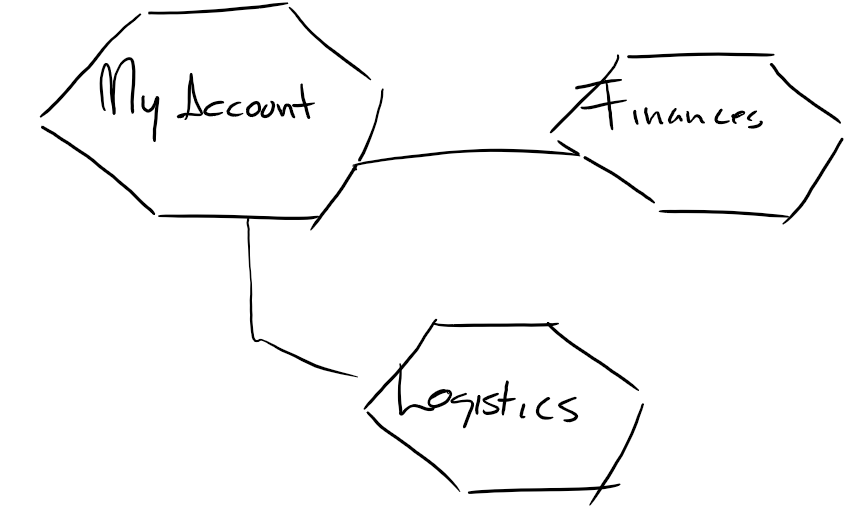 My Account
Finances
Logistics